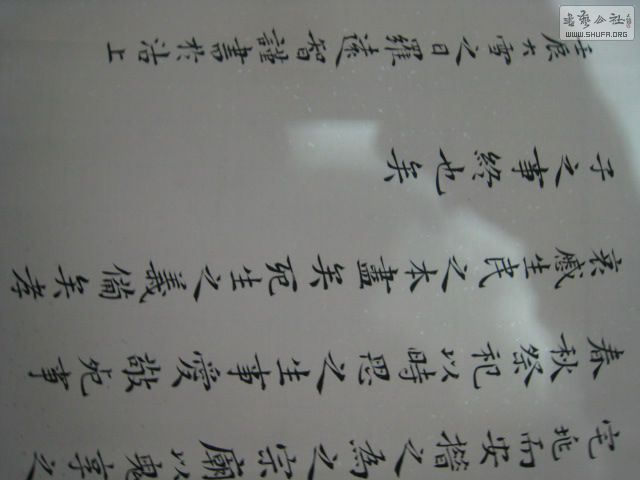 宅兆而安措之為之宗廟以鬼享之
春秋祭祀以時思之生事愛敬死事
哀慼生民之本盡矣死生之義備矣孝
子之事終也矣
壬辰大雪之日羅遠智謹書於沽上
书艺公社
WWW.SHUFA.ORG